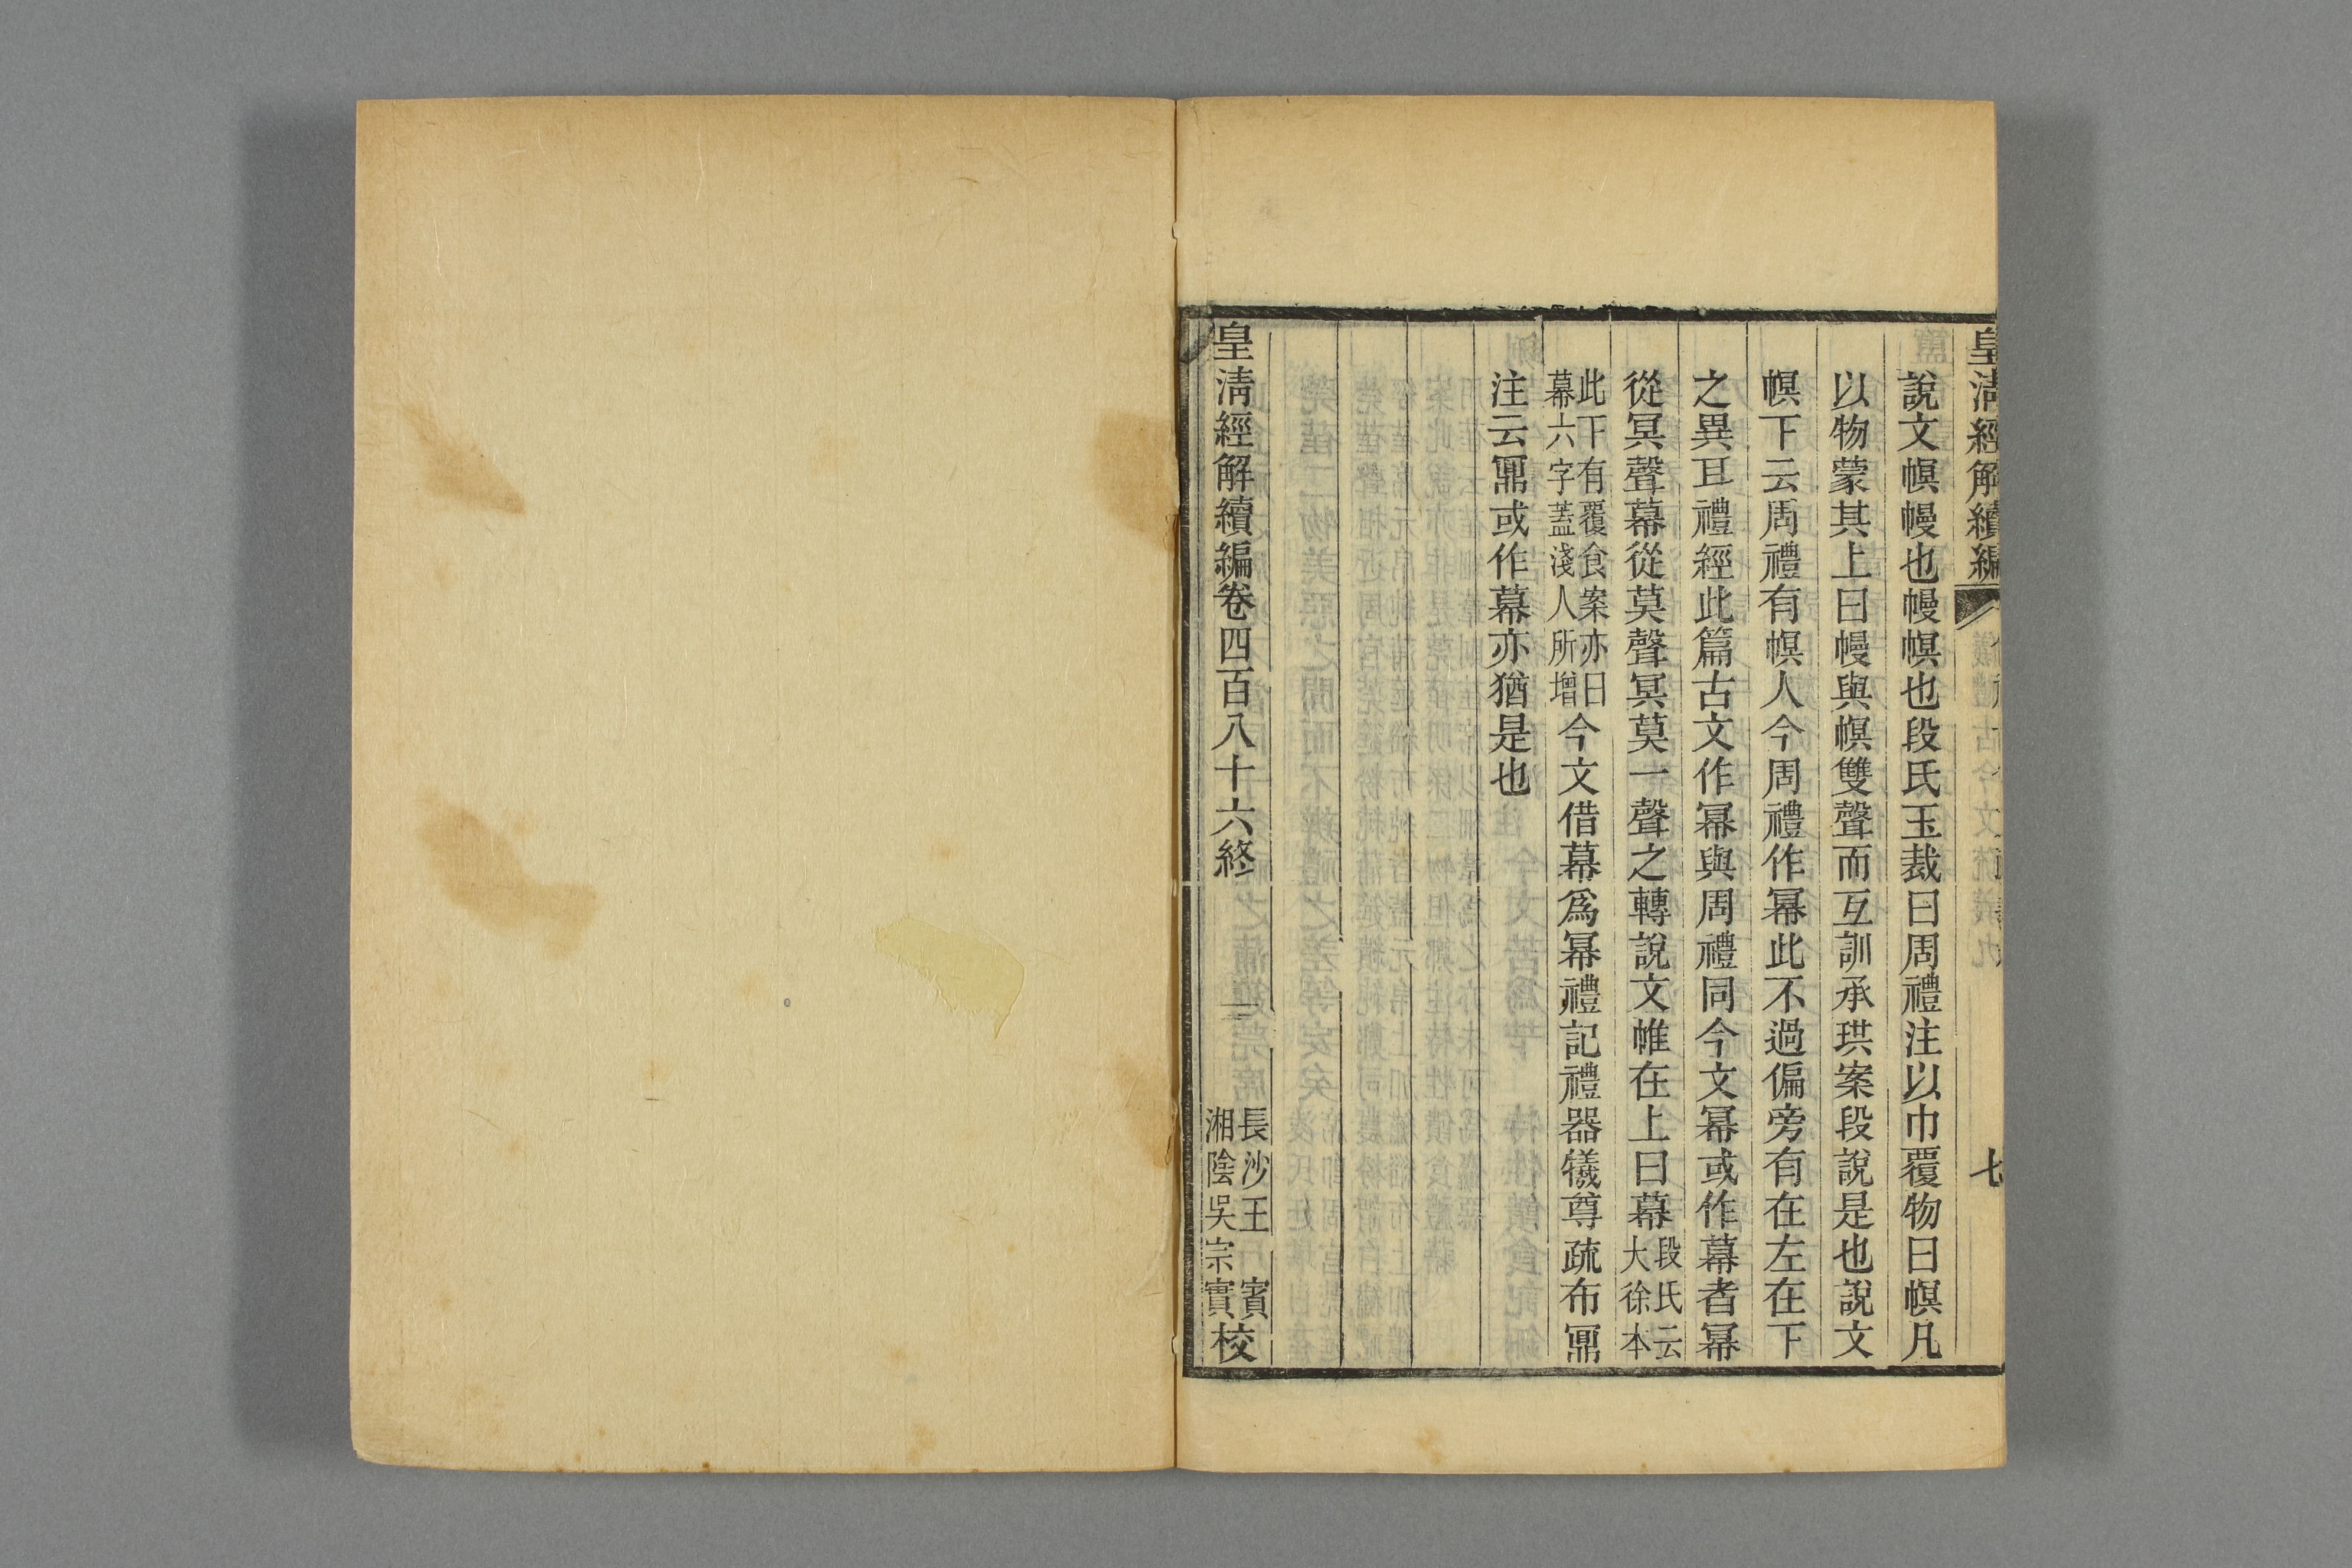 皇清經解續編
七
說文幎幔也幔幎也段氏玉裁曰周禮注以巾覆物曰幎凡
以物蒙其上曰幔與幎雙聲而互訓承珙案段說是也說文
幎下云周禮有幎人今周禮作冪此不過偏旁有在左在下
之異耳禮經此篇古文作冪與周禮同今文冪或作幕者冪
從冥聲幕從莫聲冥莫一聲之轉說文帷在上曰幕段氏云大徐本
此下有覆食案亦曰幕六字蓋淺人所增今文借幕爲冪禮記禮器犧尊疏布鼏
注云鼏或作幕亦猶是也
皇清經解續編卷四百八十六終
長沙王 賓
湘陰吳宗實校